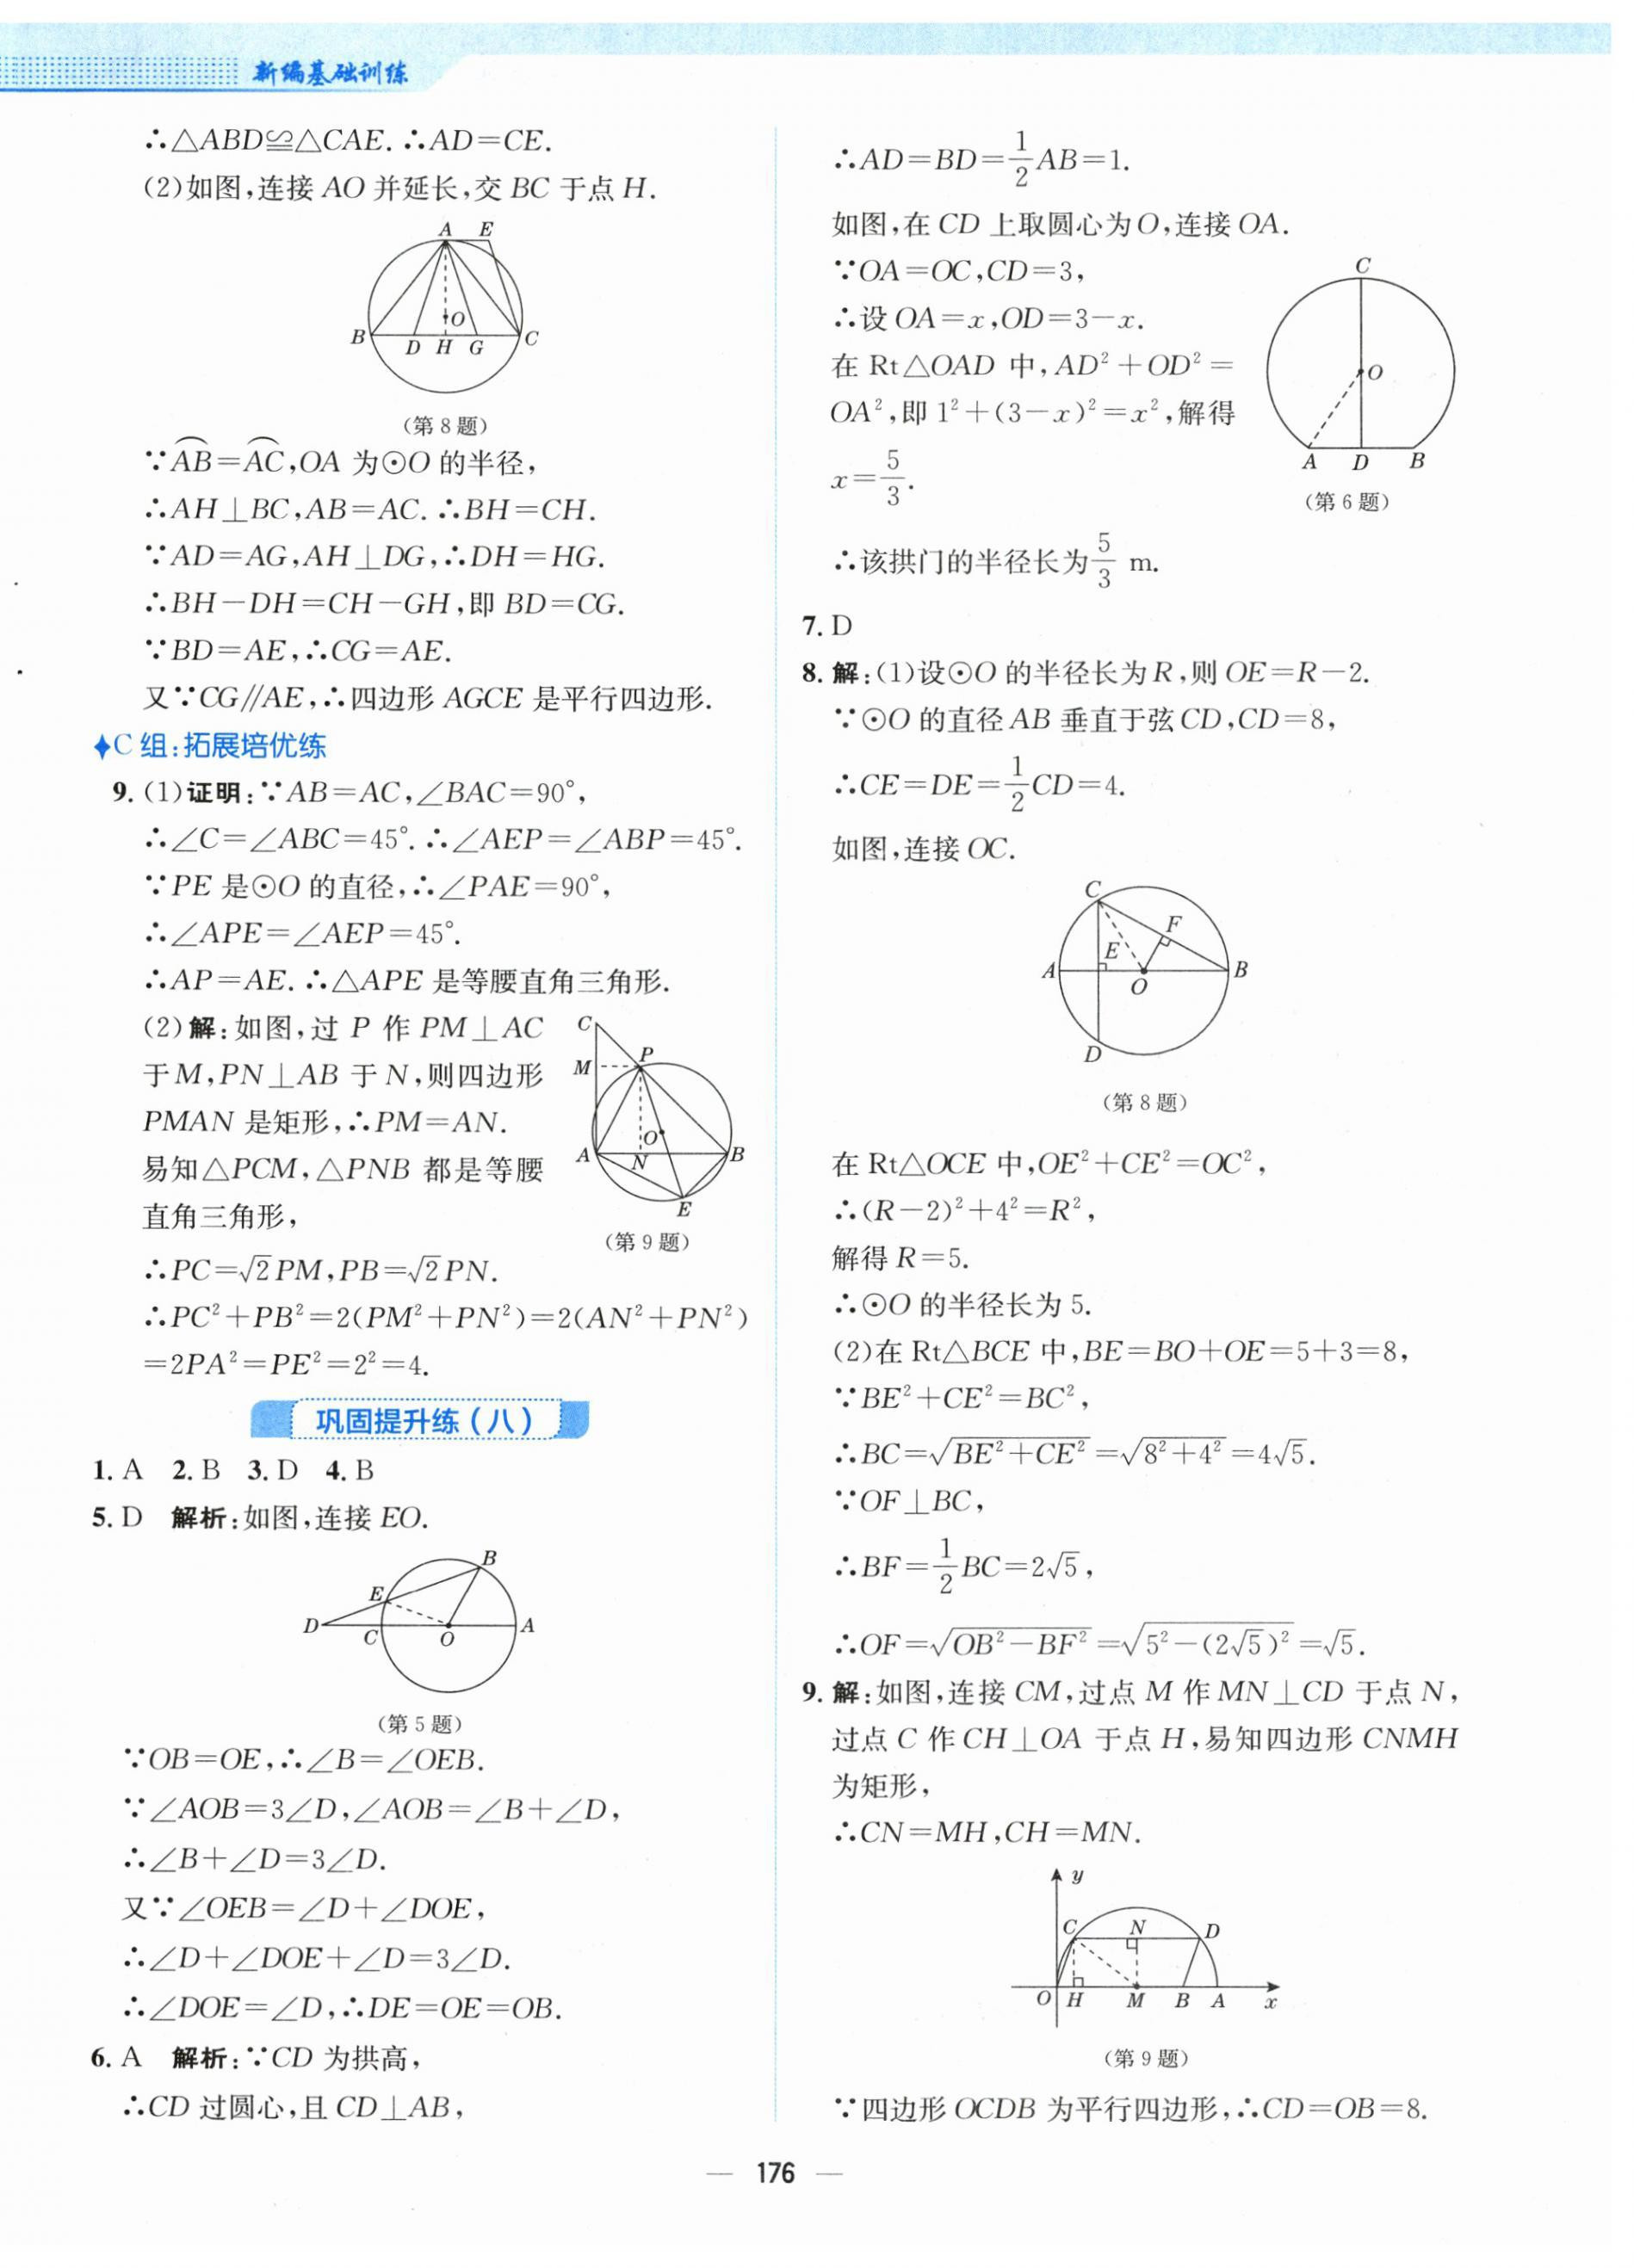 新编基础训练
∴△ABD≌△CAE.∴AD=CE.
(2)如图,连接 AO 并延长,交 BC 于点 H.
A E
O
B D H G C
(第 8 题)
∵⌒AB=⌒AC,OA 为⊙O 的半径,
∴AH⊥BC,AB=AC.∴BH=CH.
∵AD=AG,AH⊥DG,∴DH=HG.
∴BH-DH=CH-GH,即 BD=CG.
∵BD=AE,∴CG=AE.
又∵CG∥AE,∴四边形 AGCE 是平行四边形.
C 组:拓展培优练
9. (1)证明:∵AB=AC,∠BAC=90°,
∴∠C=∠ABC=45°.∴∠AEP=∠ABP=45°.
∵PE 是⊙O 的直径,∴∠PAE=90°,
∴∠APE=∠AEP=45°.
∴AP=AE.∴△APE 是等腰直角三角形.
(2)解:如图,过 P 作 PM⊥AC
于 M,PN⊥AB 于 N,则四边形
PMAN 是矩形,∴PM=AN.
易知△PCM,△PNB 都是等腰
直角三角形,
C
M P
O
A N B
E
(第 9 题)
∴PC=√2PM,PB=√2PN.
∴PC²+PB²=2(PM²+PN²)=2(AN²+PN²)
=2PA²=PE²=2²=4.
巩固提升练(八)
1. A 2. B 3. D 4. B
5. D 解析:如图,连接 EO.
B
E
D C O A
(第 5 题)
∵OB=OE,∴∠B=∠OEB.
∵∠AOB=3∠D,∠AOB=∠B+∠D,
∴∠B+∠D=3∠D.
又∵∠OEB=∠D+∠DOE,
∴∠D+∠DOE+∠D=3∠D.
∴∠DOE=∠D,∴DE=OE=OB.
6. A 解析:∵CD 为拱高,
∴CD 过圆心,且 CD⊥AB,
∴AD=BD=1/2AB=1.
如图,在 CD 上取圆心为 O,连接 OA.
∵OA=OC,CD=3,
∴设 OA=x,OD=3-x.
在 Rt△OAD 中,AD²+OD²=
OA²,即 1²+(3-x)²=x²,解得
x=5/3.
C
O
A D B
(第 6 题)
∴该拱门的半径长为5/3 m.
7. D
8. 解:(1)设⊙O 的半径长为 R,则 OE=R-2.
∵⊙O 的直径 AB 垂直于弦 CD,CD=8,
∴CE=DE=1/2CD=4.
如图,连接 OC.
C
F
E
A O B
D
(第 8 题)
在 Rt△OCE 中,OE²+CE²=OC²,
∴(R-2)²+4²=R²,
解得 R=5.
∴⊙O 的半径长为 5.
(2)在 Rt△BCE 中,BE=BO+OE=5+3=8,
∵BE²+CE²=BC²,
∴BC=√(BE²+CE²)=√(8²+4²)=4√5.
∵OF⊥BC,
∴BF=1/2BC=2√5,
∴OF=√(OB²-BF²)=√(5²-(2√5)²)=√5.
9. 解:如图,连接 CM,过点 M 作 MN⊥CD 于点 N,
过点 C 作 CH⊥OA 于点 H,易知四边形 CNMH
为矩形,
∴CN=MH,CH=MN.
y
C N D
O H M B A x
(第 9 题)
∵四边形 OCDB 为平行四边形,∴CD=OB=8.
— 176 —